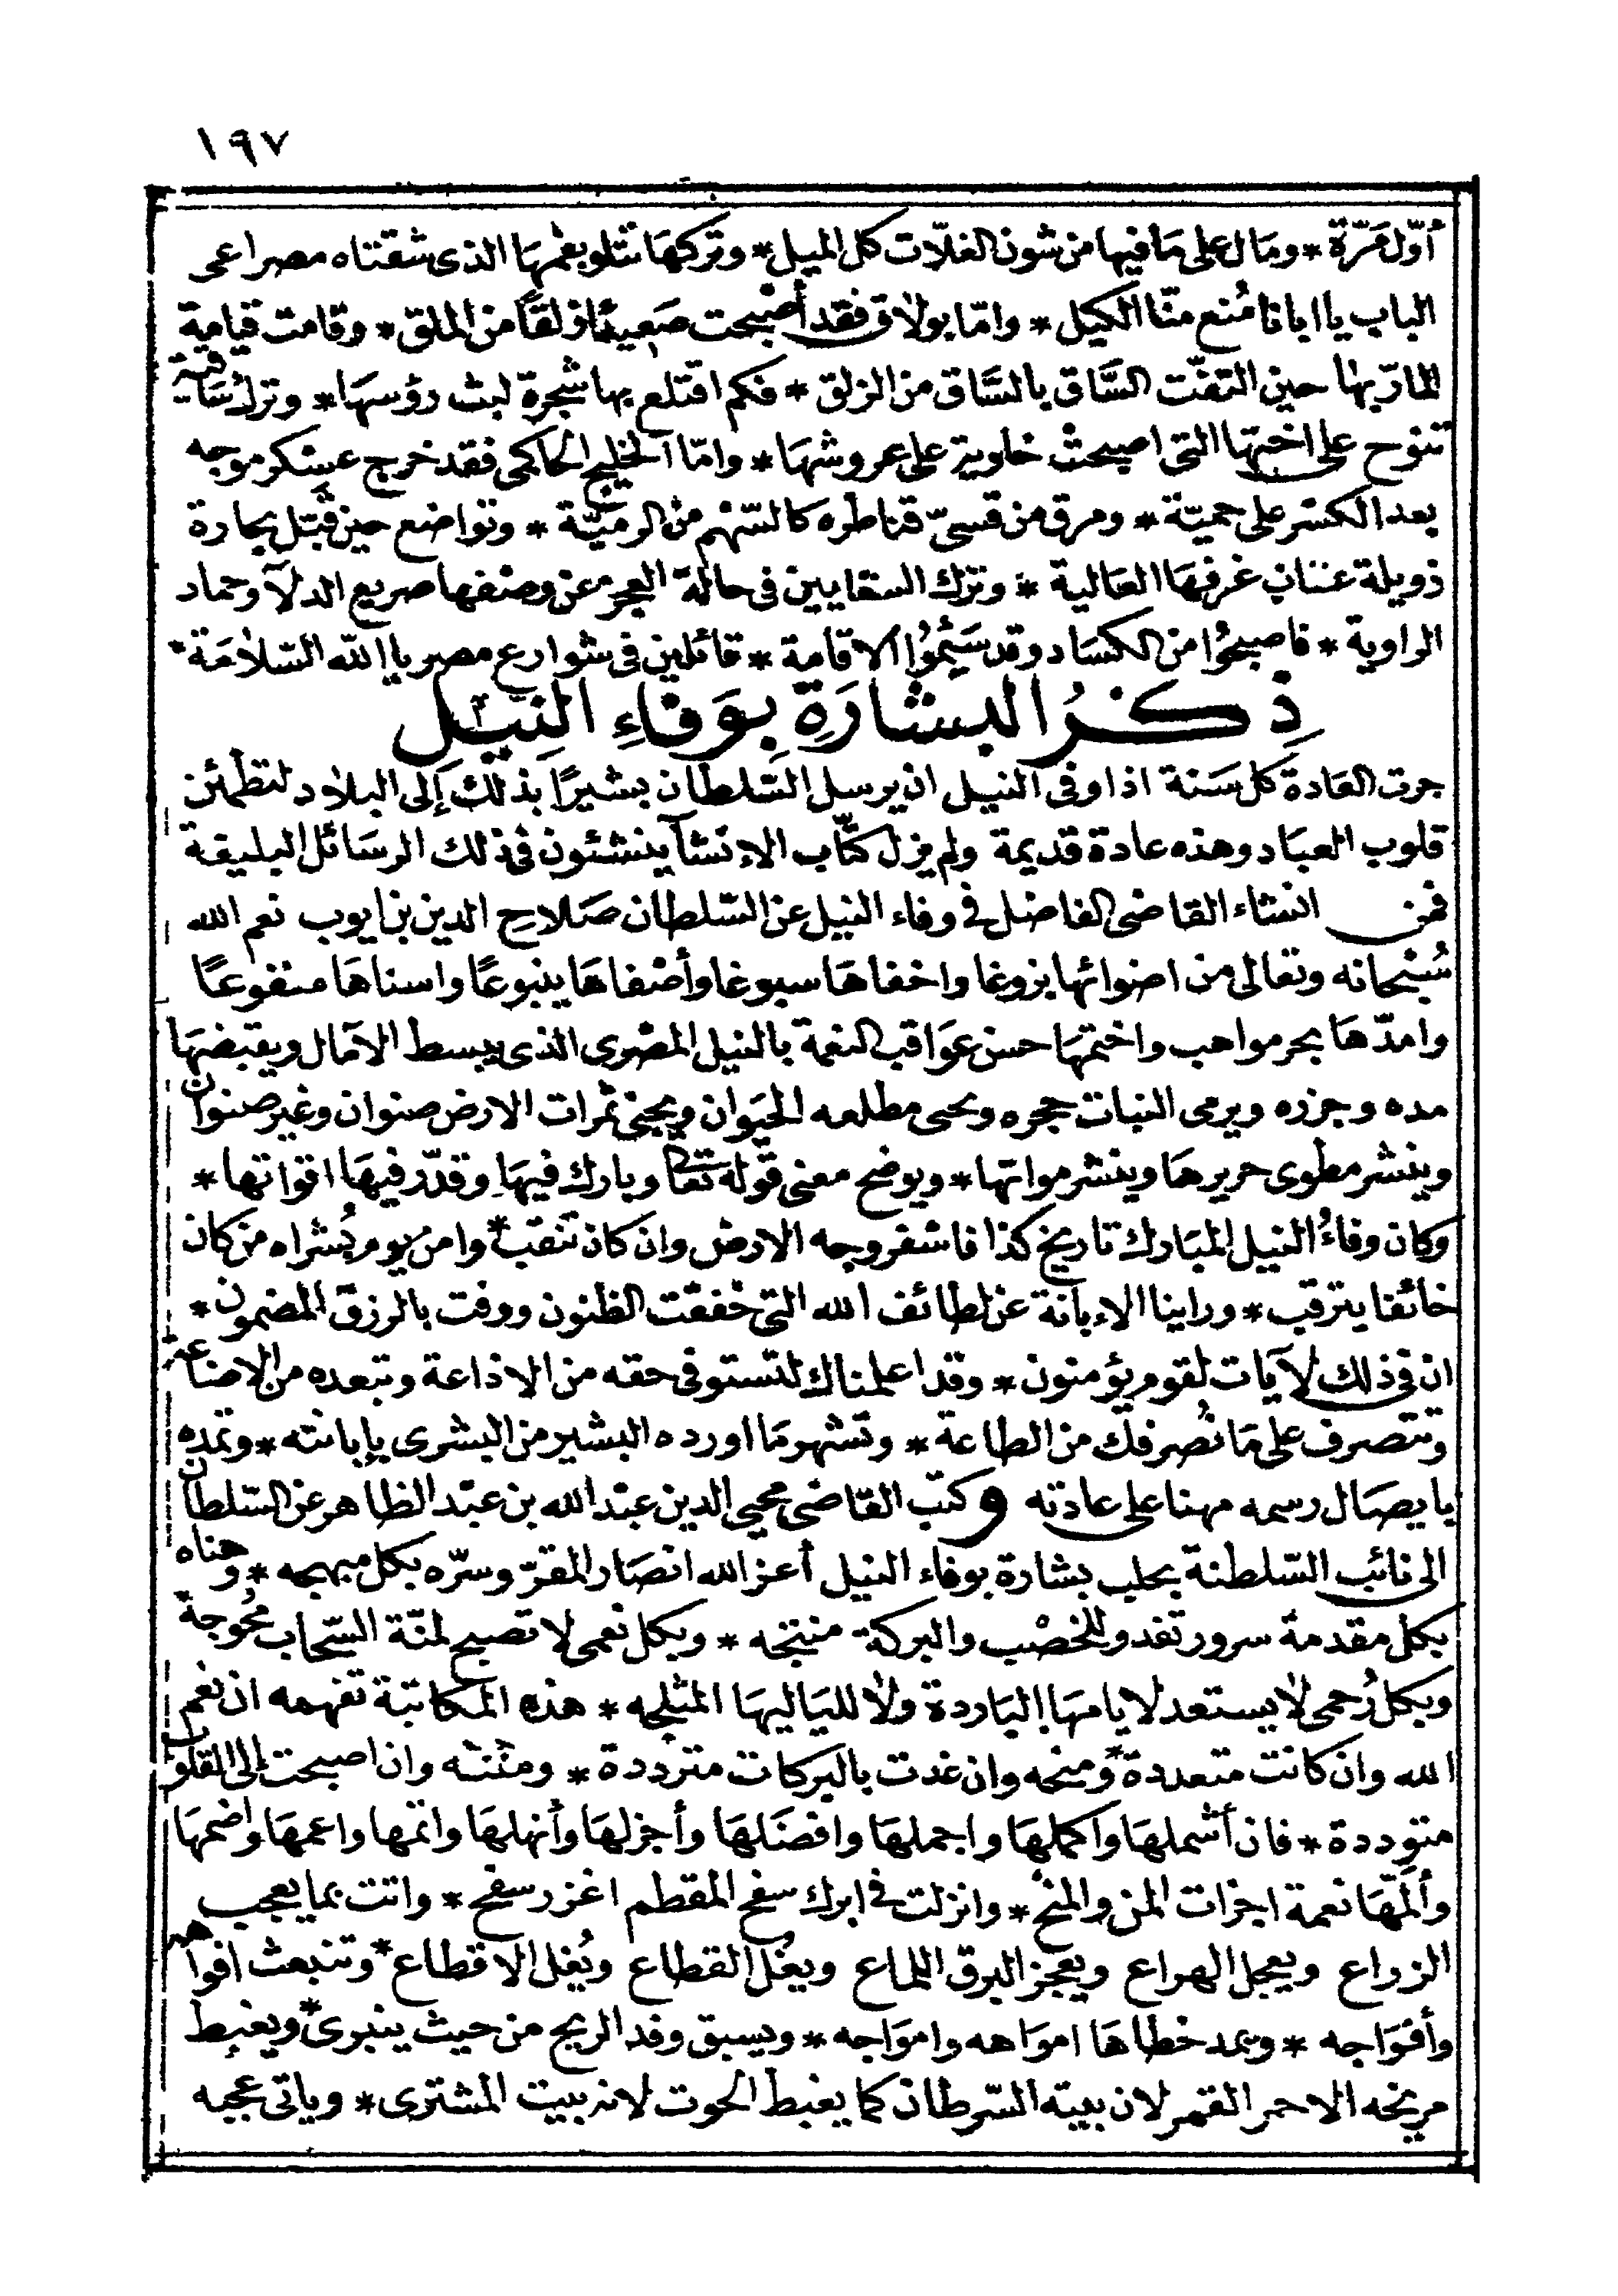 ١٩٧
أوّل مَرّة * ومَال على مَا فيها من شون الغلّات كل الميل * وتركهَا تتلو بفمهَا الذى شقتناه مصراعى
الباب يا ابانا مُنع منّا الكيل * وامّا بولاق فقد أصْبحت صَعِيدًا زلقًا من الملق * وقامت قيامة
المارّ بها حين التفّت السَّاق بالسَّاق من الزلق * فكم اقتلع بها شجرة لبث رؤسهَا * وترك سَاقية
تنوح على اختها التى اصبحتْ خاوية على عروشهَا * وامّا الخليج الحاكمى فقد خرج عسكر موجه
بعد الكسْر على حميّة * ومرق من قسىّ قناطره كالسّهْم من الرميّة * وتواضع حين قبّل بحارة
زويلة عتبات غرفهَا العَالية * وترك السقايين فى حالة العجز عن وصْفها صريع الدلآ وحماد
الراوية * فاصبحُوا من الكسَاد وقد سَئِمُوا الاقامة * قائلين فى شوارع مصر يا الله السّلامَة *
ذِكْرُ البشَارَةِ بِوَفَاءِ النِيْل
جرت العَادة كل سَنة اذا وفى النيل ان يرسل السّلطان بشيرًا بذلك إلى البلاد لتطمئن
قلوب العبَاد وهذه عادة قديمة ولم يزل كتّاب الإنشآ ينشئون فى ذلك الرسَائل البليغة
فمن انشاء القاضى الفاضل فى وفاء النيل عن السّلطان صَلاحِ الدين بن ايوب نعم الله
سُبْحانه وتعالى من اضوائها بزوغا واخفاهَا سبوغا وأصْفاهَا ينبوعًا واسناهَا منفوعًا
وامدّهَا بحر مواهب واختمهَا حسن عَوَاقب النعمة بالنيل المصْرى الذى يبسط الآمال ويقبضهَا
مده وجزره ويرمى النبات حجره ويحيى مطلعه الحيَوان ويجنى ثمرات الارض صنوان وغير صنوان
وينشر مطوى حريرهَا وينشر مواتها * ويوضح معنى قوله تعالى وبارك فيهَا وقدّر فيهَا اقواتها *
وكان وفاءُ النيل المبَارك تاريخ كذا فاسْفر وجه الارض وان كان تنقّب * وامن يوم بُشراه من كان
خائفا يترقب * وراينا الابانة عن لطائف الله التى خففّت الظنون ووفت بالرزق المضمون *
ان فى ذلك لآيات لقوم يؤمنون * وقد اعلمناك لتستوفى حقه من الاذاعة وتبعده من الاضاعة
وتتصرف على مَا نُصرفك من الطاعة * وتشهر مَا اورده البشير من البشرى بإبانته * وتمده
بايصَال رسمه مهنا على عادته وكتب القاضى محيى الدين عبْد الله بن عبْد الظاهر عن السّلطان
الى نائب السّلطنة بحلب بشارة بوفاء النيل أعز الله انصَار المقرّ وسرّه بكل مبهجه * وهناه
بكل مقدمة سرور تغدو للخصْب والبركة منتجه * وبكل نعمى لا تصبح لمنّة السّحاب مُحوجة
وبكل رُحمى لا يستعد لايامهَا البَاردة ولا للياليهَا المثلجه * هذه المكاتبة تفهمه ان نعم
الله وان كانت متعددة * ومنحه وان غدت بالبركات مترددة * ومننه وان اصبحت إلى القلوب
متوددة * فان أشملهَا واكملهَا واجملهَا وافضَلهَا وأجزلهَا وأنهلهَا واتمها واعمهَا واضمهَا
وألمّهَا نعمة اجزات المن والمنح * وانزلت فى ابرك سفح المقطم اغزر سفح * واتت بما يعجب
الزراع ويعجل الهراع ويعجز البرق اللماع ويغُل القطاع ويُغل الاقطاع * وتنبعث افواهه
وأفوَاجه * ويمد خطاهَا امواهه وامواجه * ويسبق وفد الريح من حيث ينبرى * ويغبط
مريخه الاحمر القمر لان بيته السّرطان كما يغبط الحوت لانه بيت المشترى * وياتى عجبه